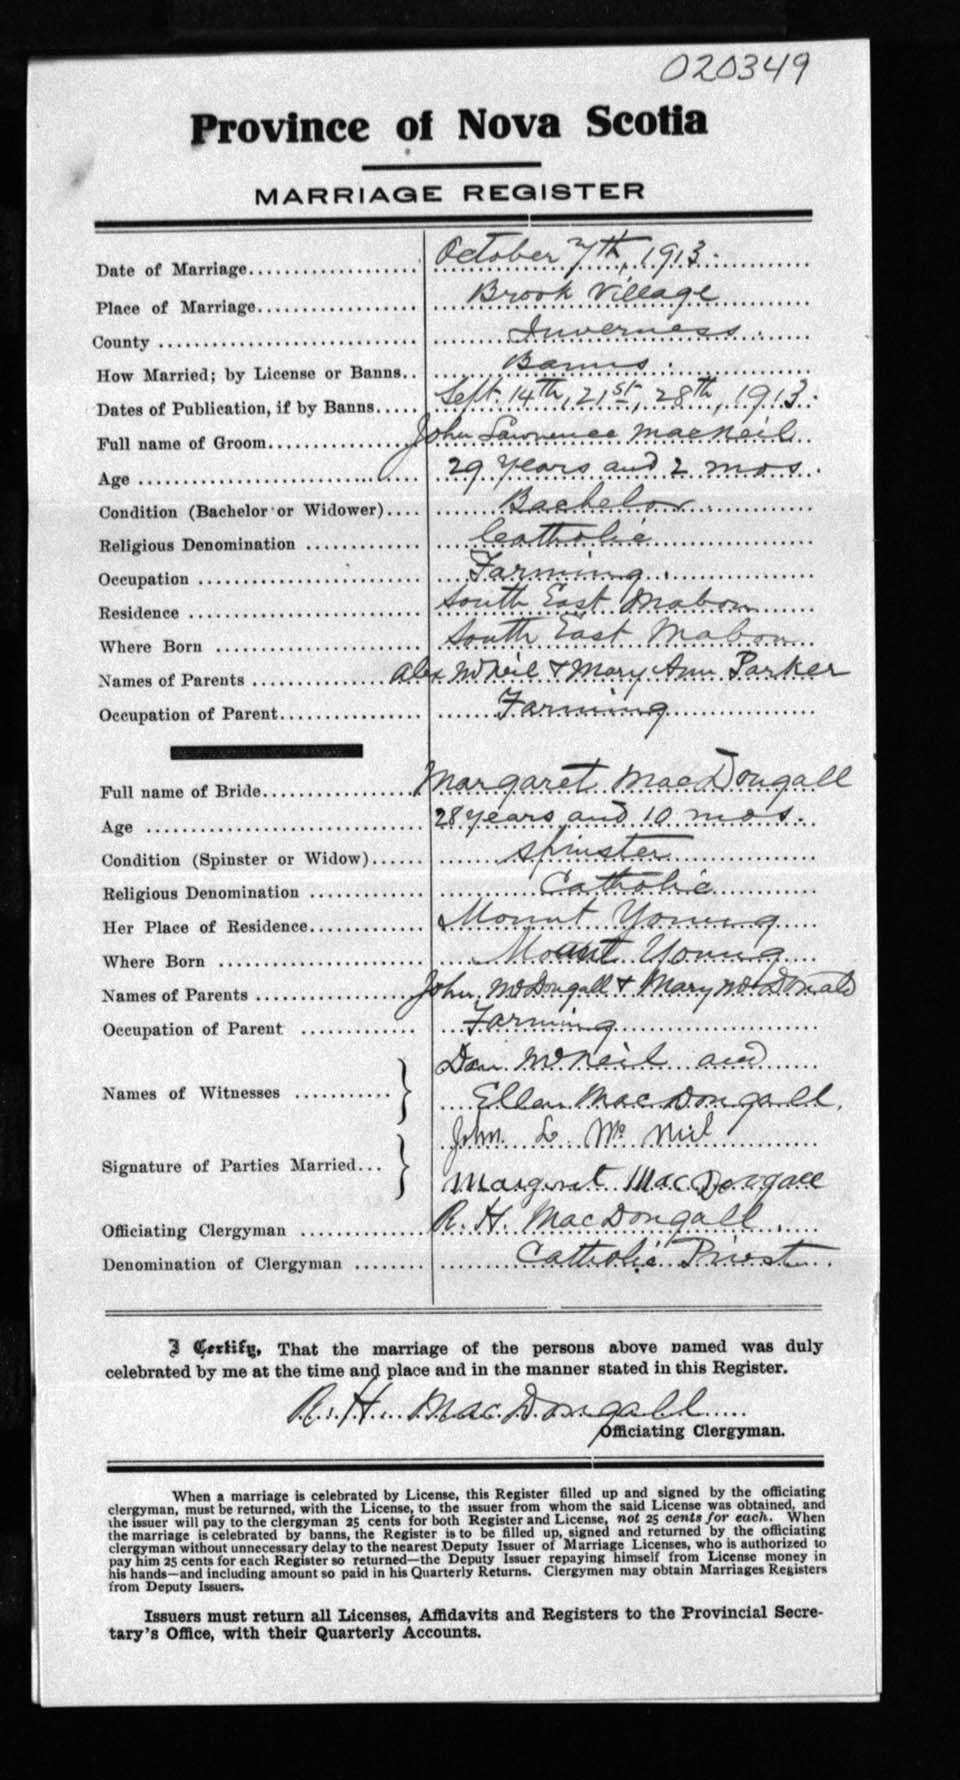 020349
Province of Nova Scotia
MARRIAGE REGISTER
Date of Marriage.................. October 7th, 1913.
Place of Marriage.................. Brook Village
County .................. Inverness.
How Married; by License or Banns.. Banns.
Dates of Publication, if by Banns..... Sept. 14th, 21st, 28th, 1913.
Full name of Groom.................. John Lawrence MacNeil
Age .................. 29 years and 2 mos.
Condition (Bachelor or Widower).... Bachelor
Religious Denomination ............. Catholic
Occupation .................. Farming.
Residence .................. South East Mabou
Where Born .................. South East Mabou
Names of Parents .................. Alex McNeil & Mary Ann Parker
Occupation of Parent.................. Farming
Full name of Bride.................. Margaret MacDougall
Age .................. 28 years and 10 mos.
Condition (Spinster or Widow)...... Spinster
Religious Denomination ............. Catholic
Her Place of Residence............. Mount Young
Where Born .................. Mount Young
Names of Parents .................. John McDougall & Mary McDonald
Occupation of Parent ............. Farming
Names of Witnesses ............ Dan McNeil and
Ellen MacDougall.
Signature of Parties Married... John L Mc Neil
Margaret MacDougall
Officiating Clergyman ............. R. H. MacDougall.
Denomination of Clergyman ........ Catholic Priest.
I Certify, That the marriage of the persons above named was duly
celebrated by me at the time and place and in the manner stated in this Register.
R. H. MacDougall
Officiating Clergyman.
When a marriage is celebrated by License, this Register filled up and signed by the officiating
clergyman, must be returned, with the License, to the issuer from whom the said License was obtained, and
the issuer will pay to the clergyman 25 cents for both Register and License, not 25 cents for each. When
the marriage is celebrated by banns, the Register is to be filled up, signed and returned by the officiating
clergyman without unnecessary delay to the nearest Deputy Issuer of Marriage Licenses, who is authorized to
pay him 25 cents for each Register so returned—the Deputy Issuer repaying himself from License money in
his hands—and including amount so paid in his Quarterly Returns. Clergymen may obtain Marriages Registers
from Deputy Issuers.
Issuers must return all Licenses, Affidavits and Registers to the Provincial Secre-
tary's Office, with their Quarterly Accounts.